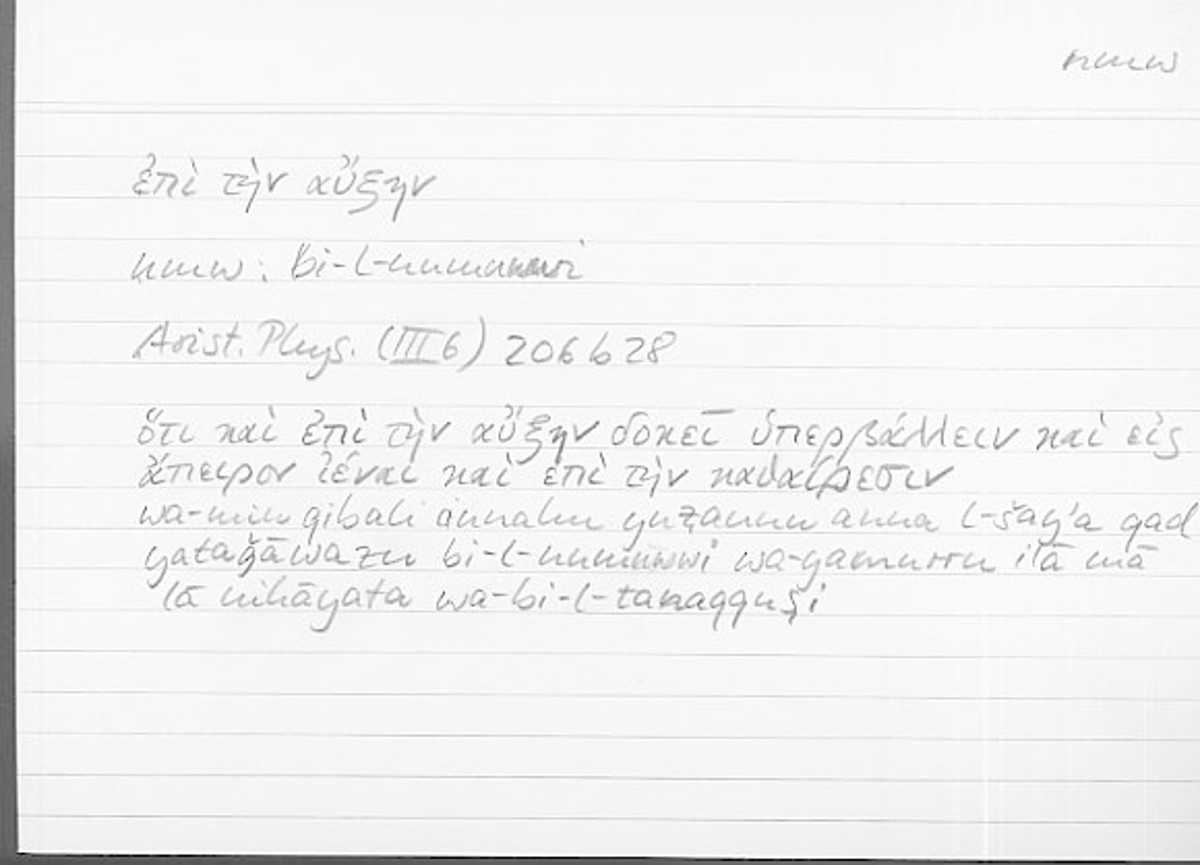 nmw
ἐπὶ τὴν αὔξην
nmw: bi-l-numuwwi
Arist. Phys. (III 6) 206 b 28
ὅτι καὶ ἐπὶ τὴν αὔξην δοκεῖ ὑπερβάλλειν καὶ εἰς
ἄπειρον ἰέναι καὶ ἐπὶ τὴν καθαίρεσιν
wa-min qibali annahu yuẓannu anna l-šayʾa qad
yataǧāwazu bi-l-numuwwi wa-yamurru ilā mā
lā nihāyata wa-bi-l-tanaqquṣi